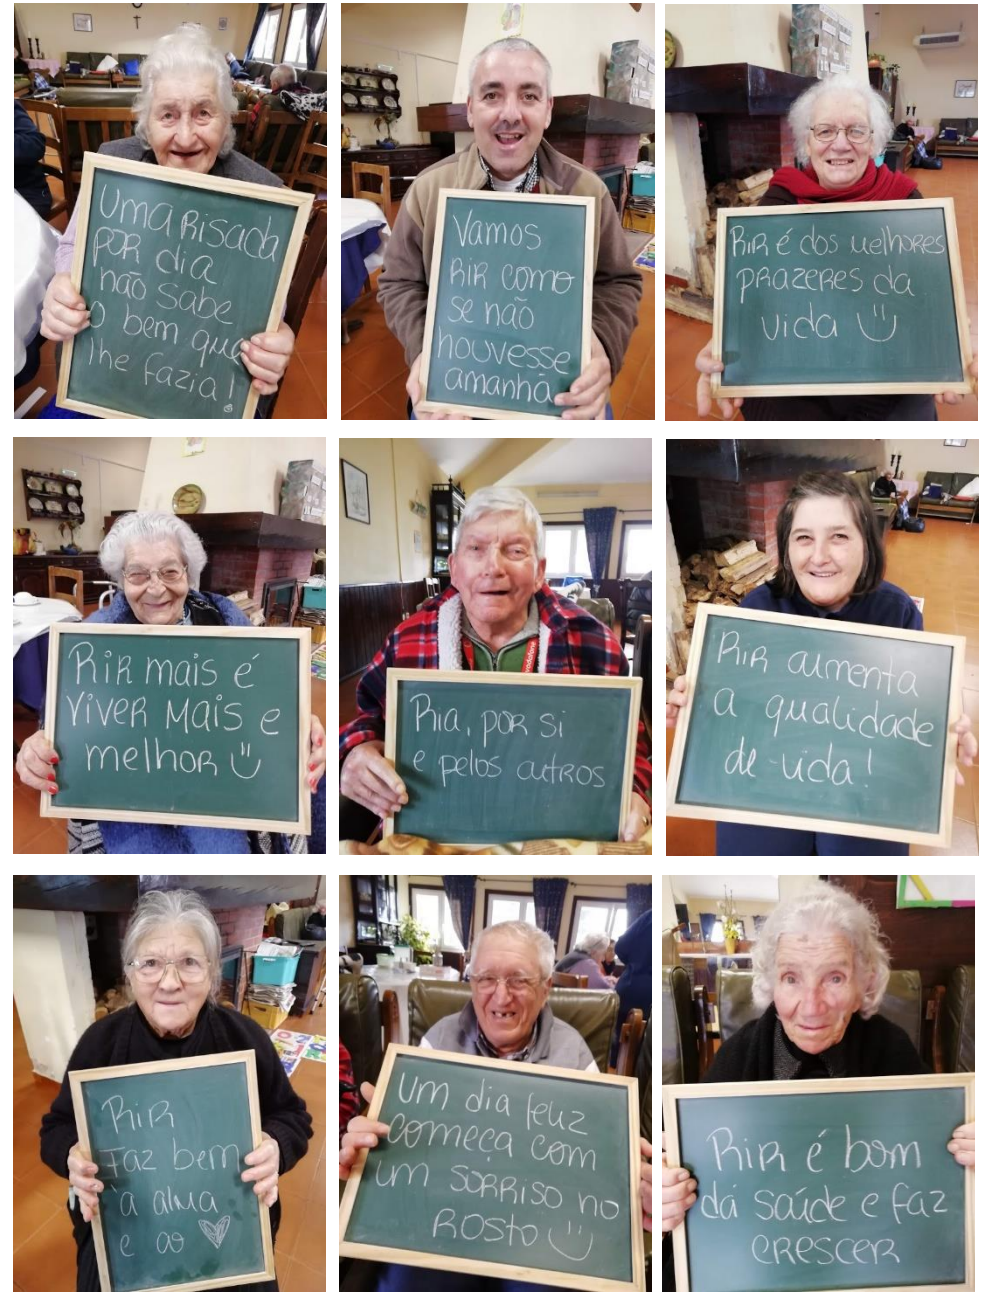 Uma Risada
por dia
não sabe
o bem que
lhe fazia!
Vamos
Rir como
se não
houvesse
amanhã
Rir é dos melhores
prazeres da
vida
Rir mais é
viver mais e
melhor
Ria, por si
e pelos outros
vodafone
Rir aumenta
a qualidade
de vida!
Rir
Faz bem
à alma
e ao
Um dia feliz
começa com
um sorriso no
Rosto
Rir é bom
dá saúde e faz
crescer